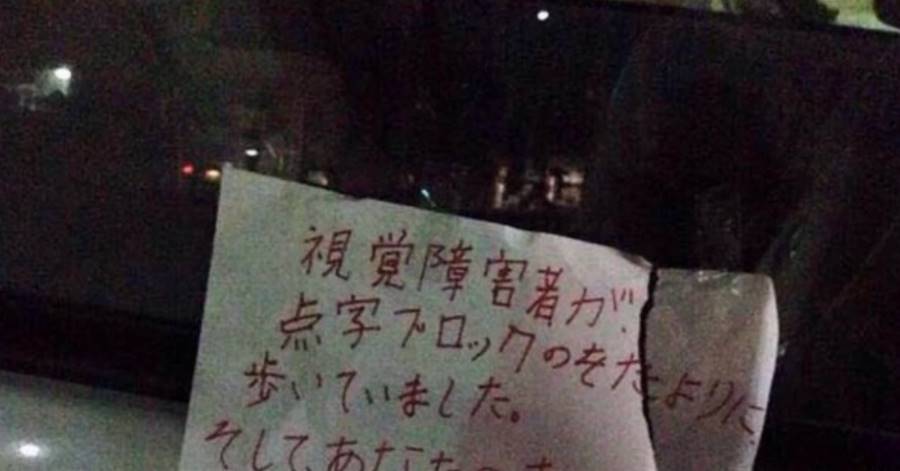 視覚障害者が、
点字ブロックのをたよりに、
歩いていました。
そして、あなたの